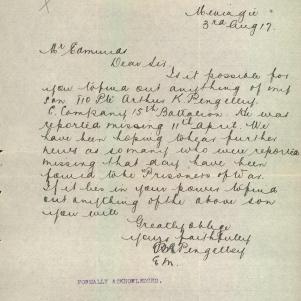 Meningie
3rd Aug 17.
Mr Edmunds
Dear Sir
Is it possible for
you to find out anything of my
son 710 Pte Arthur K. Pengelley.
C. Company 15th Battalion. He was
reported missing 11th April. We
have been hoping to hear further
news as so many who were reported
missing that day have been
found to be Prisoners of War.
If it lies in your power to find
out anything of the above son
you will
Greatly oblige
yours faithfully
Pengelley
FORMALLY ACKNOWLEDGED.